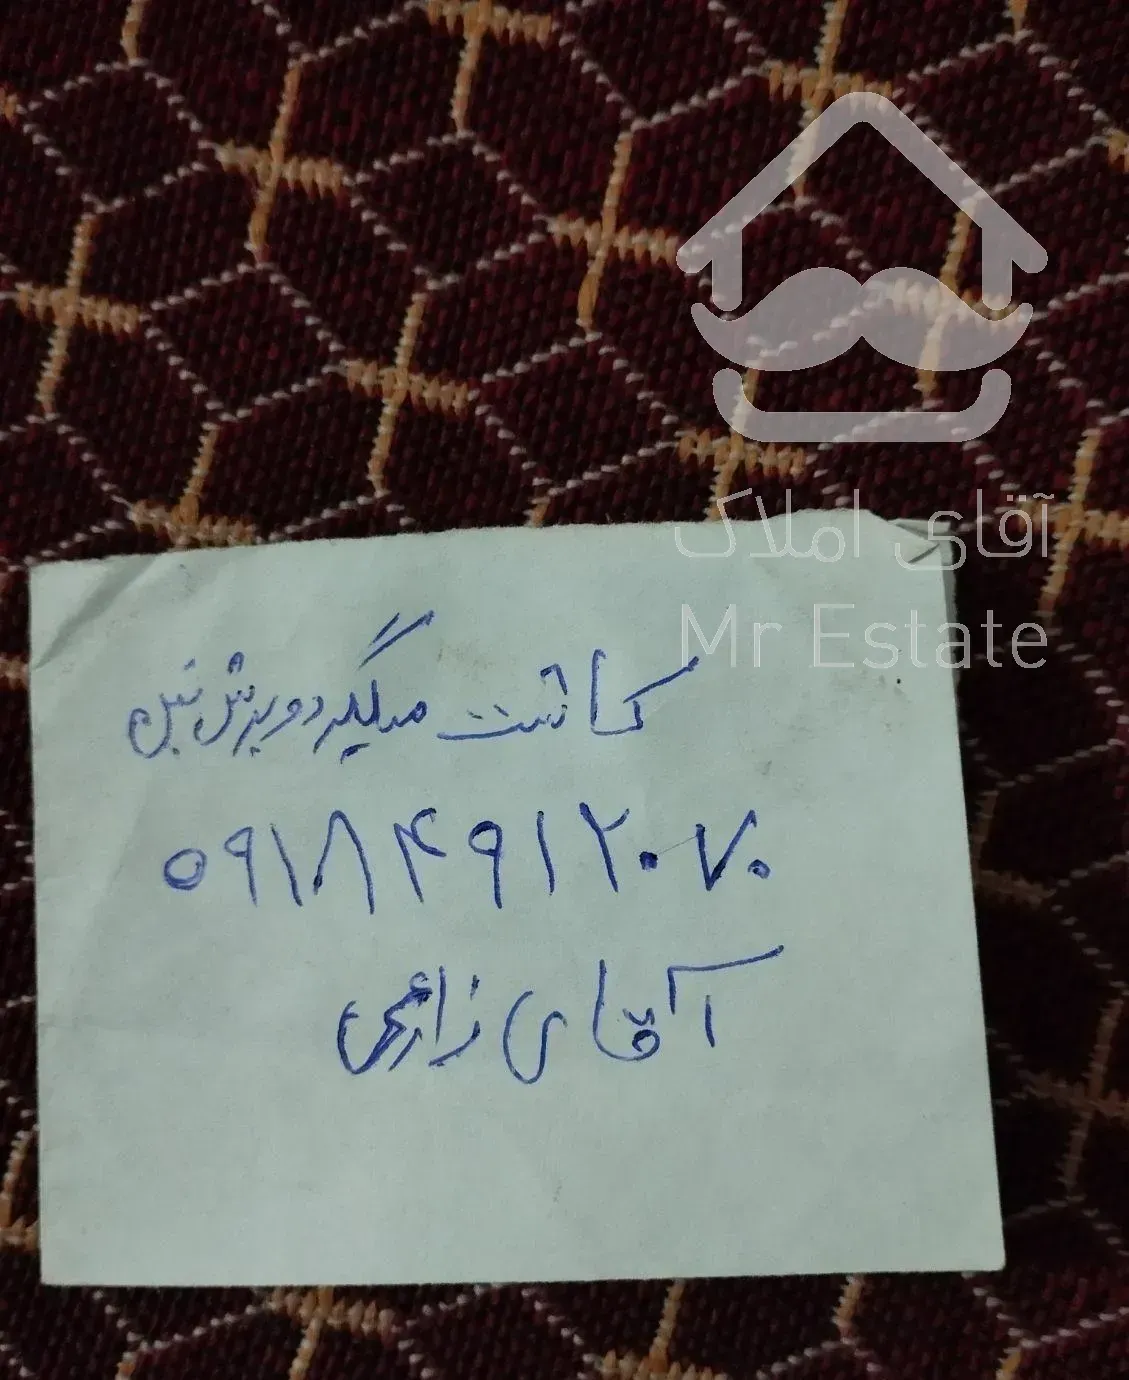 آقای املاک
Mr Estate
کاشت میلگرد و برش بتن
۰۹۱۸۴۹۱۲۰۷۰
آقای زارعی